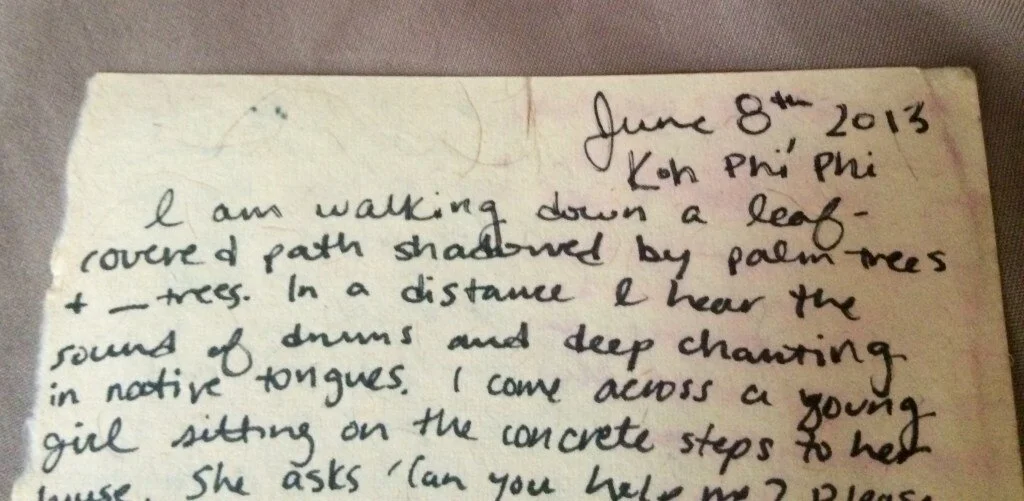 June 8th, 2013
Koh Phi Phi
I am walking down a leaf-
covered path shadowed by palm trees
+ _ trees. In a distance I hear the
sound of drums and deep chanting
in native tongues. I come across a young
girl sitting on the concrete steps to her
house. She asks 'Can you help me? Please